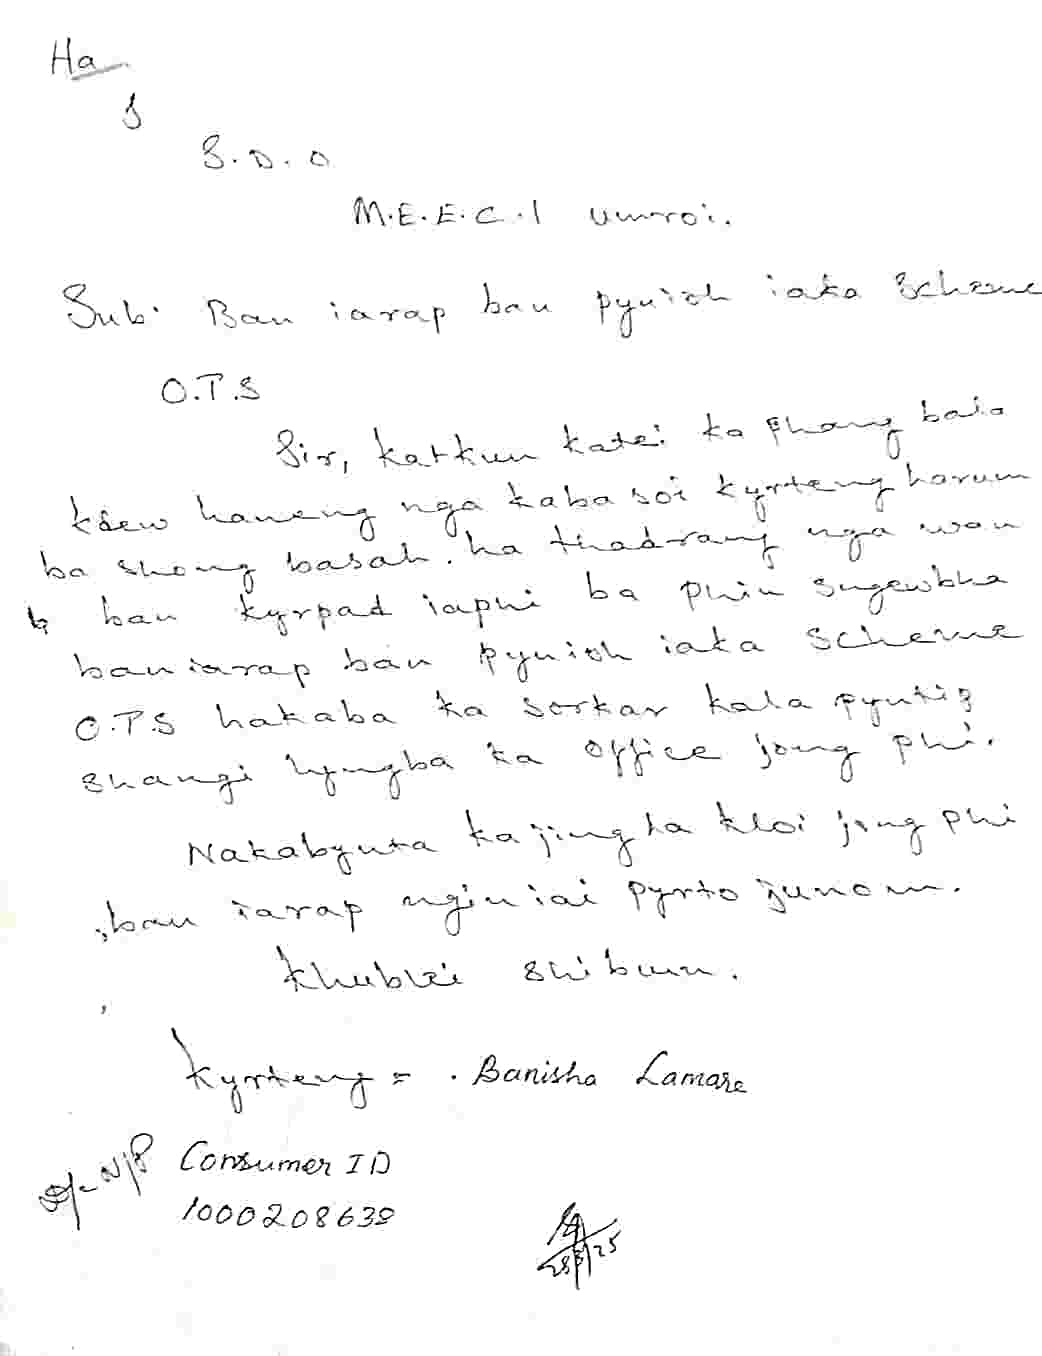 Ha
S.D.O
M.E.E.C.l Umroi.
Sub: Ban iarap ban pynioh iaka Scheme
O.T.S
Sir, katkum katei ka phang baia
kdew haneng nga kaba soi kyrteng harum
ba shong basah. ha thadrang nga wan
ban kyrpad iaphi ba phin sngewbha
ban iarap ban pynioh iaka Scheme
O.T.S hakaba ka sorkar kala pyntip
shangi lyngba ka office jong phi.
Nakabynta kajingha kloi jong phi
ban iarap ngin iai pyrto junom.
Khublei shibun.
Kyrteng = . Banisha Lamare
Consumer ID
1000208638